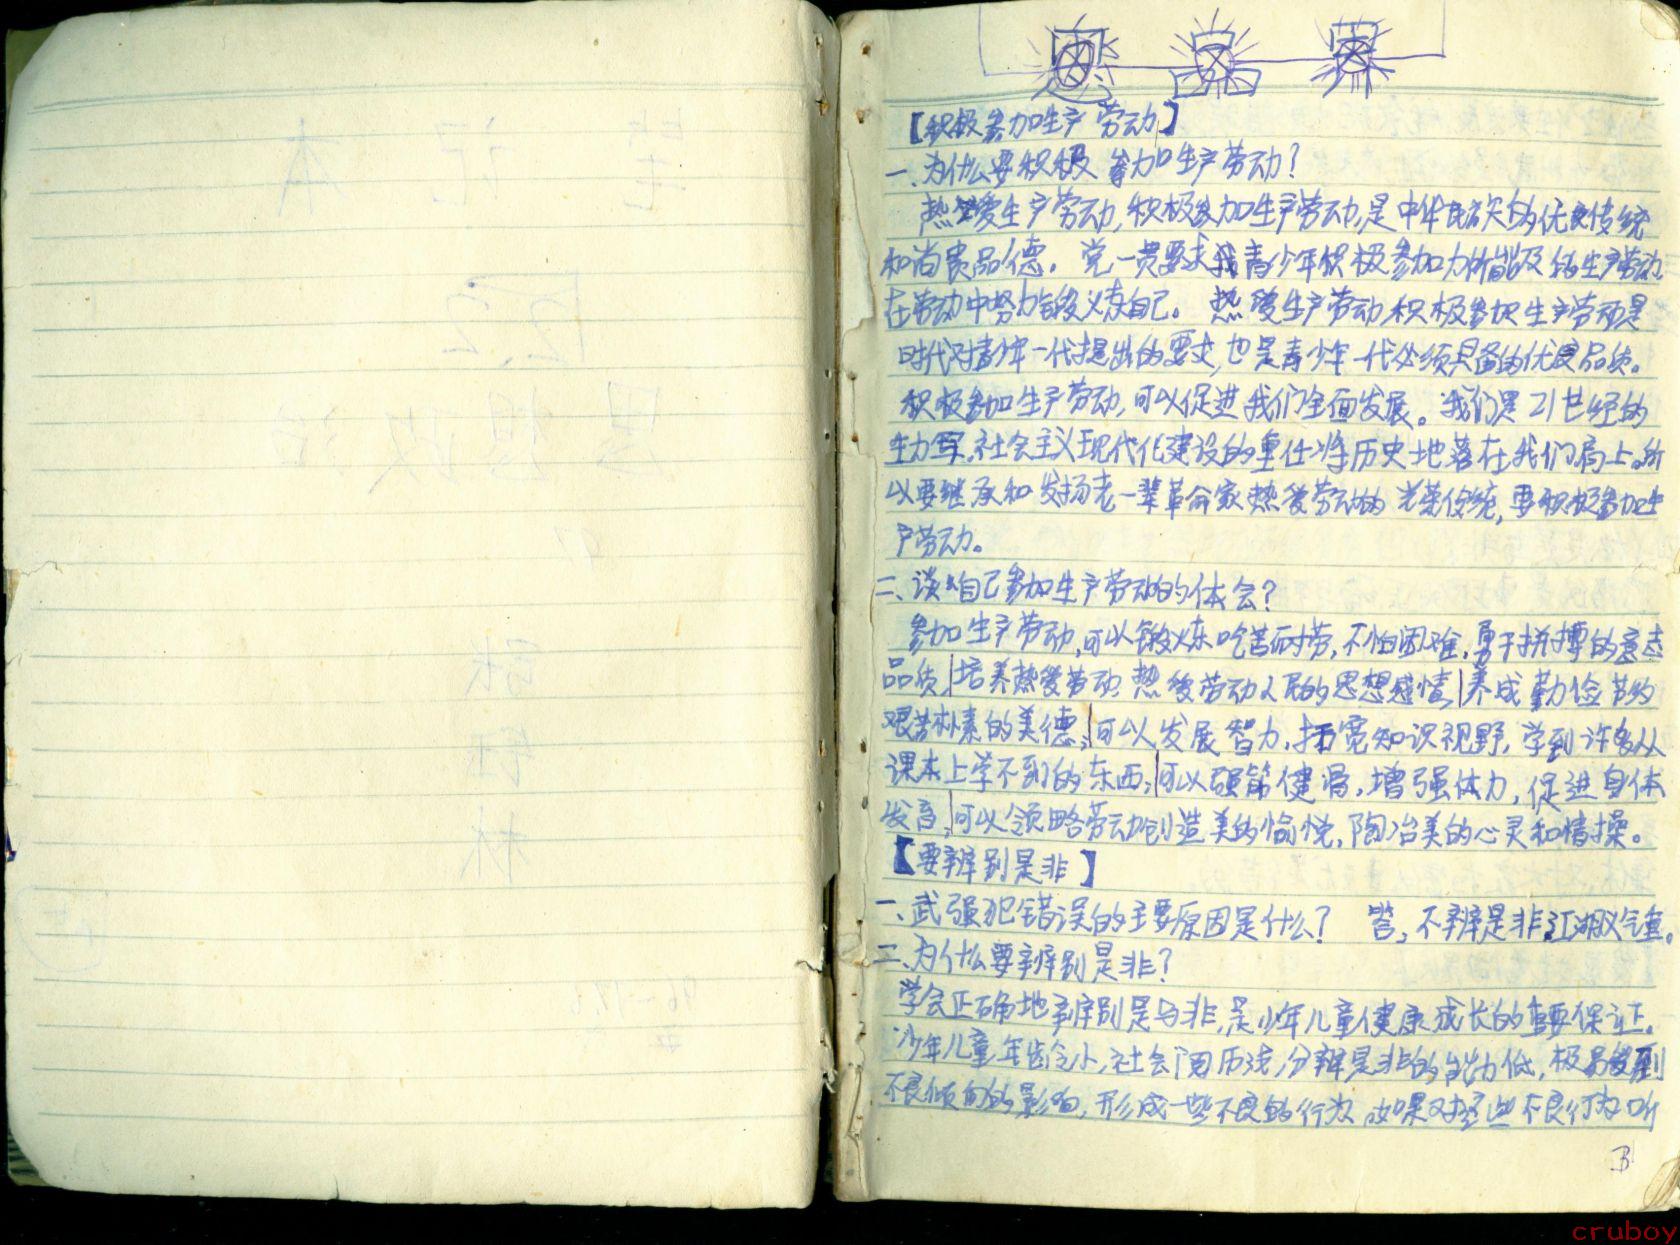 【积极参加生产劳动】
一、为什么要积极参加生产劳动?
热爱生产劳动,积极参加生产劳动,是中华民族的优良传统
和尚贵品德。党一贯要求我青少年积极参加力所能及的生产劳动
在劳动中努力锻炼自己。热爱生产劳动积极参加生产劳动是
时代对青少年一代提出的要求,也是青少年一代必须具备的优良品质。
积极参加生产劳动,可以促进我们全面发展。我们是21世纪的
生力军,社会主义现代化建设的重任将历史地落在我们肩上。所
以要继承和发扬老一辈革命家热爱劳动的光荣传统,要积极参加生
产劳动。
二、谈自己参加生产劳动的体会?
参加生产劳动,可以锻炼吃苦耐劳,不怕困难,勇于拼搏的意志
品质,培养热爱劳动热爱劳动人民的思想感情,养成勤俭节约
艰苦朴素的美德;可以发展智力,拓宽知识视野,学到许多从
课本上学不到的东西;可以强筋健骨,增强体力,促进身体
发育,可以领略劳动创造美的愉悦,陶冶美的心灵和情操。
【要辨别是非】
一、武强犯错误的主要原因是什么? 答,不辨是非,江湖义气重。
二、为什么要辨别是非?
学会正确地辨别是与非,是少年儿童健康成长的重要保证。
少年儿童年龄小,社会阅历浅,分辨是非的能力低,极易受到
不良倾向的影响,形成一些不良的行为,如果对这些不良行为听
3
cruboy